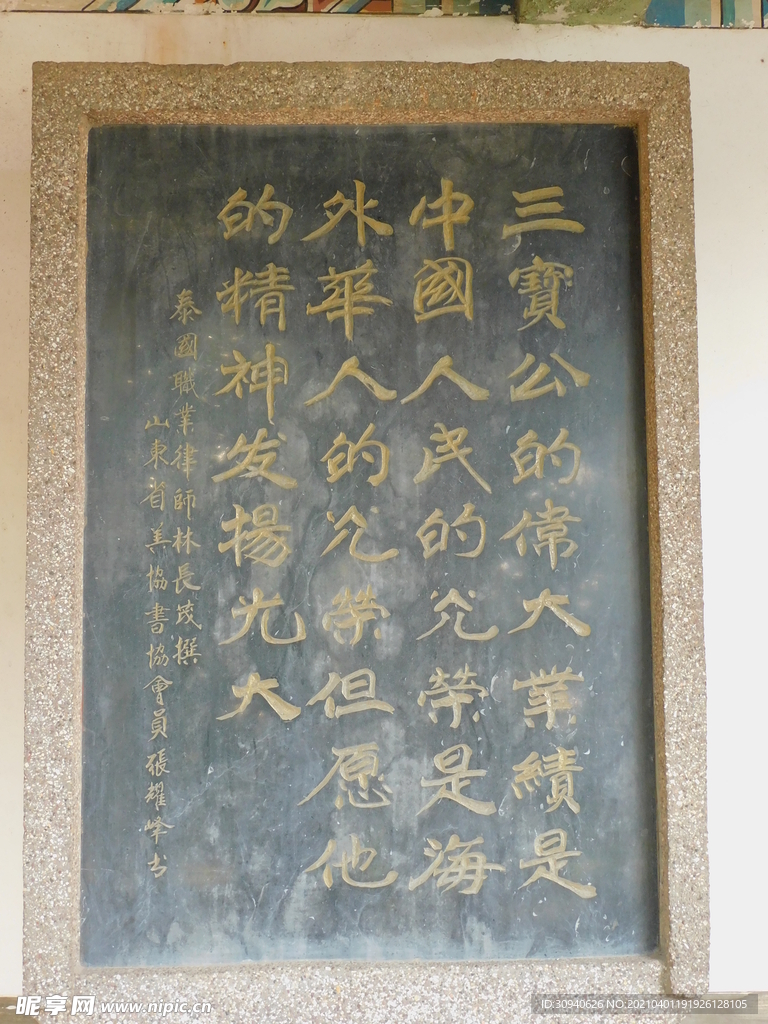 三寶公的偉大業績是
中國人民的光榮是海
外華人的光榮但愿他
的精神发揚光大
泰國職業律師林長茂撰
山東省美協書協會員張耀峰书
昵享网 www.nipic.cn
ID:30940626 NO:20210401191926128105